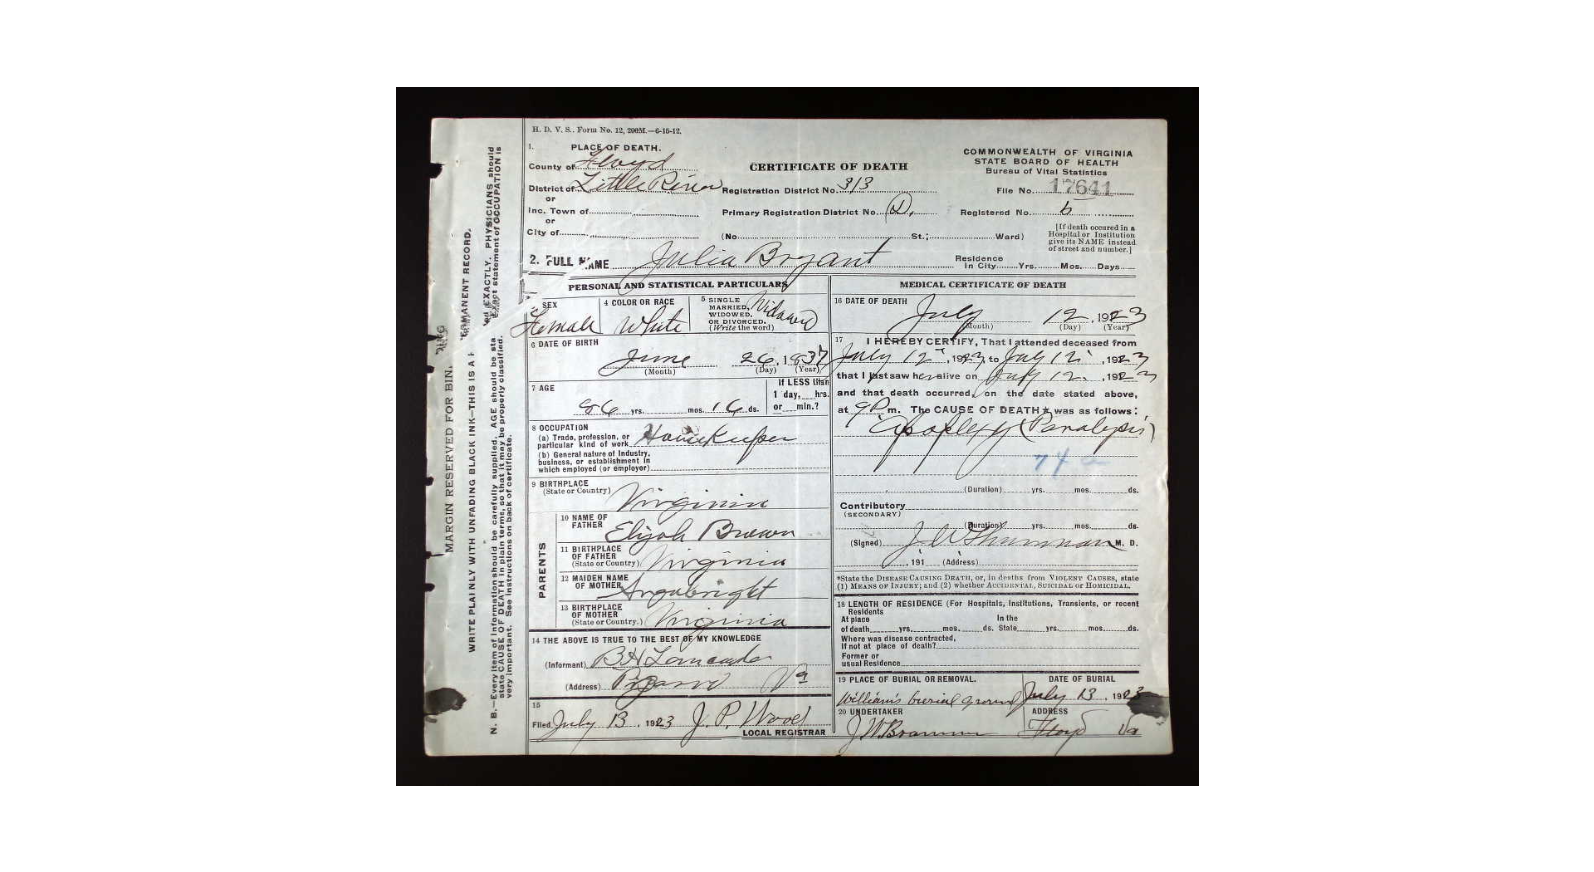 H. D. V. S. Form No. 12, 200M.—6-15-12.
1. PLACE OF DEATH.
County of Floyd
District of Little River
or
Inc. Town of
or
City of
CERTIFICATE OF DEATH
Registration District No. 313
Primary Registration District No.
(No. St.; Ward)
COMMONWEALTH OF VIRGINIA
STATE BOARD OF HEALTH
Bureau of Vital Statistics
File No. 17641
Registered No.
[If death occured in a
Hospital or Institution
give its NAME instead
of street and number.]
2. FULL NAME Julia Bryant
Residence
In City Yrs. Mos. Days
PERSONAL AND STATISTICAL PARTICULARS
SEX
Female
4 COLOR OR RACE
White
5 SINGLE
MARRIED,
WIDOWED,
OR DIVORCED.
(Write the word)
Widowed
6 DATE OF BIRTH
June 26, 1837
(Month) (Day) (Year)
7 AGE
86 yrs. mos. 16 ds.
If LESS than
1 day, hrs.
or min.?
8 OCCUPATION
(a) Trade, profession, or
particular kind of work Housekeeper
(b) General nature of Industry,
business, or establishment in
which employed (or employer)
9 BIRTHPLACE
(State or Country) Virginia
PARENTS
10 NAME OF
FATHER Elijah Brown
11 BIRTHPLACE
OF FATHER
(State or Country) Virginia
12 MAIDEN NAME
OF MOTHER Argabright
13 BIRTHPLACE
OF MOTHER
(State or Country.) Virginia
14 THE ABOVE IS TRUE TO THE BEST OF MY KNOWLEDGE
(Informant) B H
(Address) Va
15
Filed July 13, 1923 J. P. Wood
LOCAL REGISTRAR
MEDICAL CERTIFICATE OF DEATH
16 DATE OF DEATH
July 12, 1923
(Month) (Day) (Year)
17 I HEREBY CERTIFY, That I attended deceased from
July 12, 1923, to July 12, 1923
that I last saw her alive on July 12, 1923
and that death occurred, on the date stated above,
at 9 P m. The CAUSE OF DEATH* was as follows:
Apoplexy (Paralysis)
74 a
(Duration) yrs. mos. ds.
Contributory
(SECONDARY)
(Duration) yrs. mos. ds.
(Signed) J W Thurman M. D.
, 191 (Address)
*State the DISEASE CAUSING DEATH, or, in deaths from VIOLENT CAUSES, state
(1) MEANS OF INJURY; and (2) whether ACCIDENTAL, SUICIDAL or HOMICIDAL.
18 LENGTH OF RESIDENCE (For Hospitals, Institutions, Transients, or recent
Residents
At place In the
of death yrs. mos. ds. State yrs. mos. ds.
Where was disease contracted,
if not at place of death?
Former or
usual Residence
19 PLACE OF BURIAL OR REMOVAL.
William's burial ground
DATE OF BURIAL
July 13, 1923
20 UNDERTAKER
J W
ADDRESS
Floyd Va
MARGIN RESERVED FOR BIN.
WRITE PLAINLY WITH UNFADING BLACK INK—THIS IS A PERMANENT RECORD.
N. B.—Every item of information should be carefully supplied. AGE should be stated EXACTLY. PHYSICIANS should
state CAUSE OF DEATH in plain terms, so that it may be properly classified. Exact statement of OCCUPATION is
very important. See instructions on back of certificate.